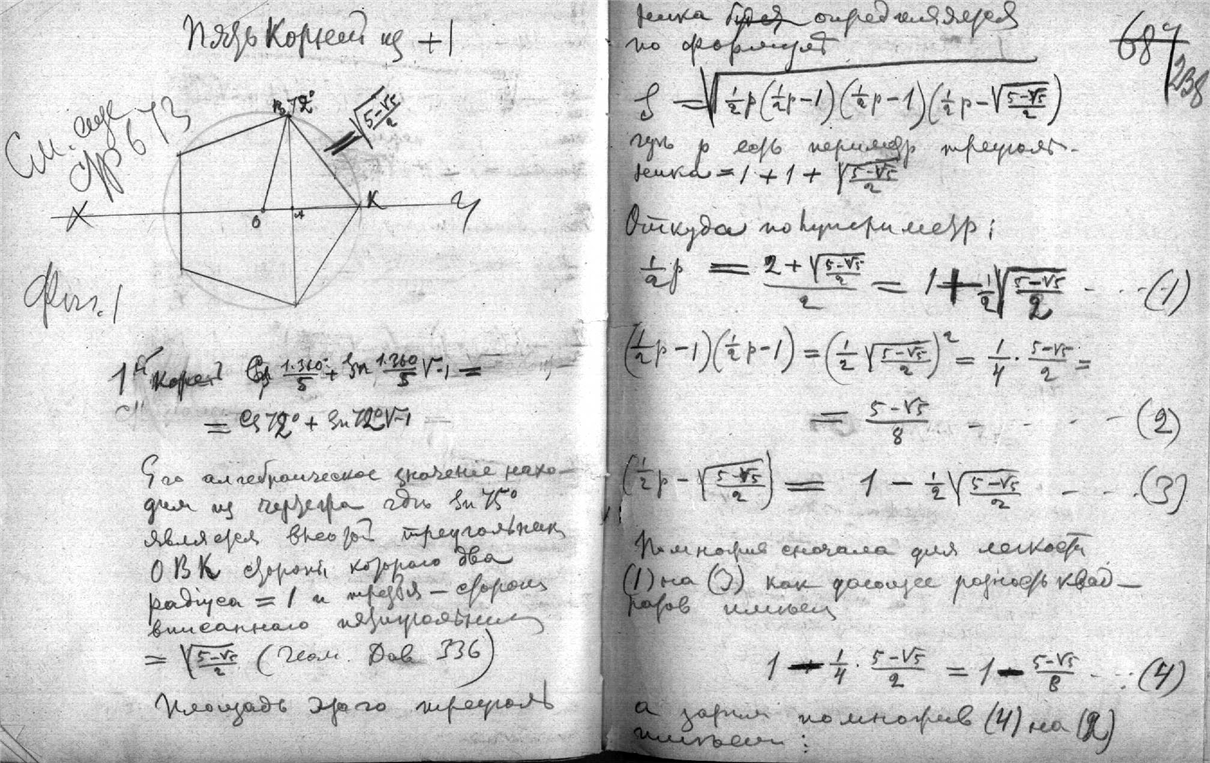 Пять Корней из +1
См. еще
стр 673
B 72°
= √((5-√5)/2)
X O A K У
Фиг. 1
1й Корень Cos 1.360°/5 + Sn 1.360/5 √-1 =
= Cos 72° + Sn 72° √-1
Его алгебраическое значение нахо-
дим из чертежа где Sn 75°
является высотой треугольник
OBK стороны которого два
радіуса = 1 и третья - сторона
вписаннаго пятиугольник
= √((5-√5)/2) (Геом. Дав. 336)
Площадь этого треугол
684
238
ника определяется
по формуле
S = √(½p(½p-1)(½p-1)(½p-√((5-√5)/2)))
где p есть периметр треугол-
ника = 1 + 1 + √((5-√5)/2)
Откуда полупериметр:
½p = (2 + √((5-√5)/2))/2 = 1 + ½√((5-√5)/2) - - - (1)
(½p-1)(½p-1) = (½√((5-√5)/2))² = ¼ · (5-√5)/2 =
= (5-√5)/8 - - - - (2)
(½p - √((5-√5)/2)) = 1 - ½√((5-√5)/2) - - - (3)
Помножив сначала для легкости
(1) на (3) как дающее разность квад-
ратов имеем
1 - ¼ · (5-√5)/2 = 1 - (5-√5)/8 - - - (4)
а затем помножив (4) на (2)
имеем: